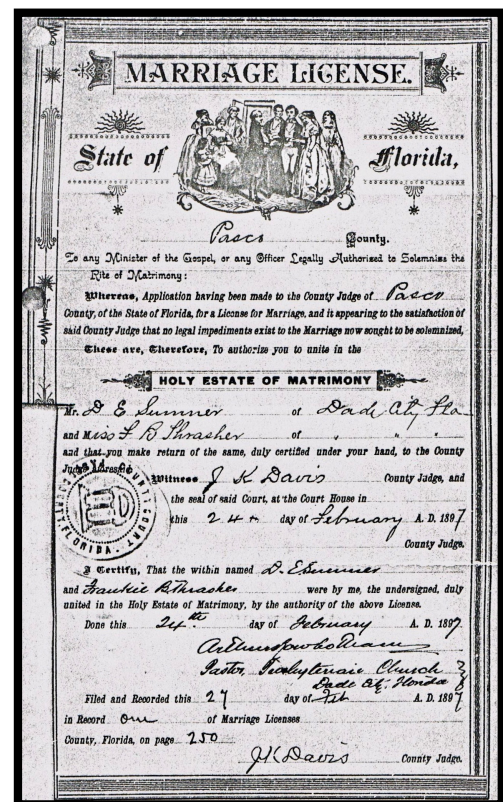 MARRIAGE LICENSE.
State of Florida,
Pasco County.
To any Minister of the Gospel, or any Officer Legally Authorized to Solemnize the
Rite of Matrimony:
Whereas, Application having been made to the County Judge of Pasco
County, of the State of Florida, for a License for Marriage, and it appearing to the satisfaction of
said County Judge that no legal impediments exist to the Marriage now sought to be solemnized,
These are, Therefore, To authorize you to unite in the
HOLY ESTATE OF MATRIMONY
Mr. D E Sumner of Dade City Fla
and Miss F B Thrasher of " " "
and that you make return of the same, duly certified under your hand, to the County
Judge aforesaid.
Witness J K Davis County Judge, and
the seal of said Court, at the Court House in
this 24 day of February A. D. 1897
County Judge.
COUNTY COURT
FLORIDA
I Certify, That the within named D. E Sumner
and Frankie B. Thrasher were by me, the undersigned, duly
united in the Holy Estate of Matrimony, by the authority of the above License.
Done this 24th day of February A. D. 1897
Pastor, Church
Dade City, Florida
Filed and Recorded this 27 day of Feb A. D. 1897
in Record One of Marriage Licenses
County, Florida, on page 250
J K Davis County Judge.